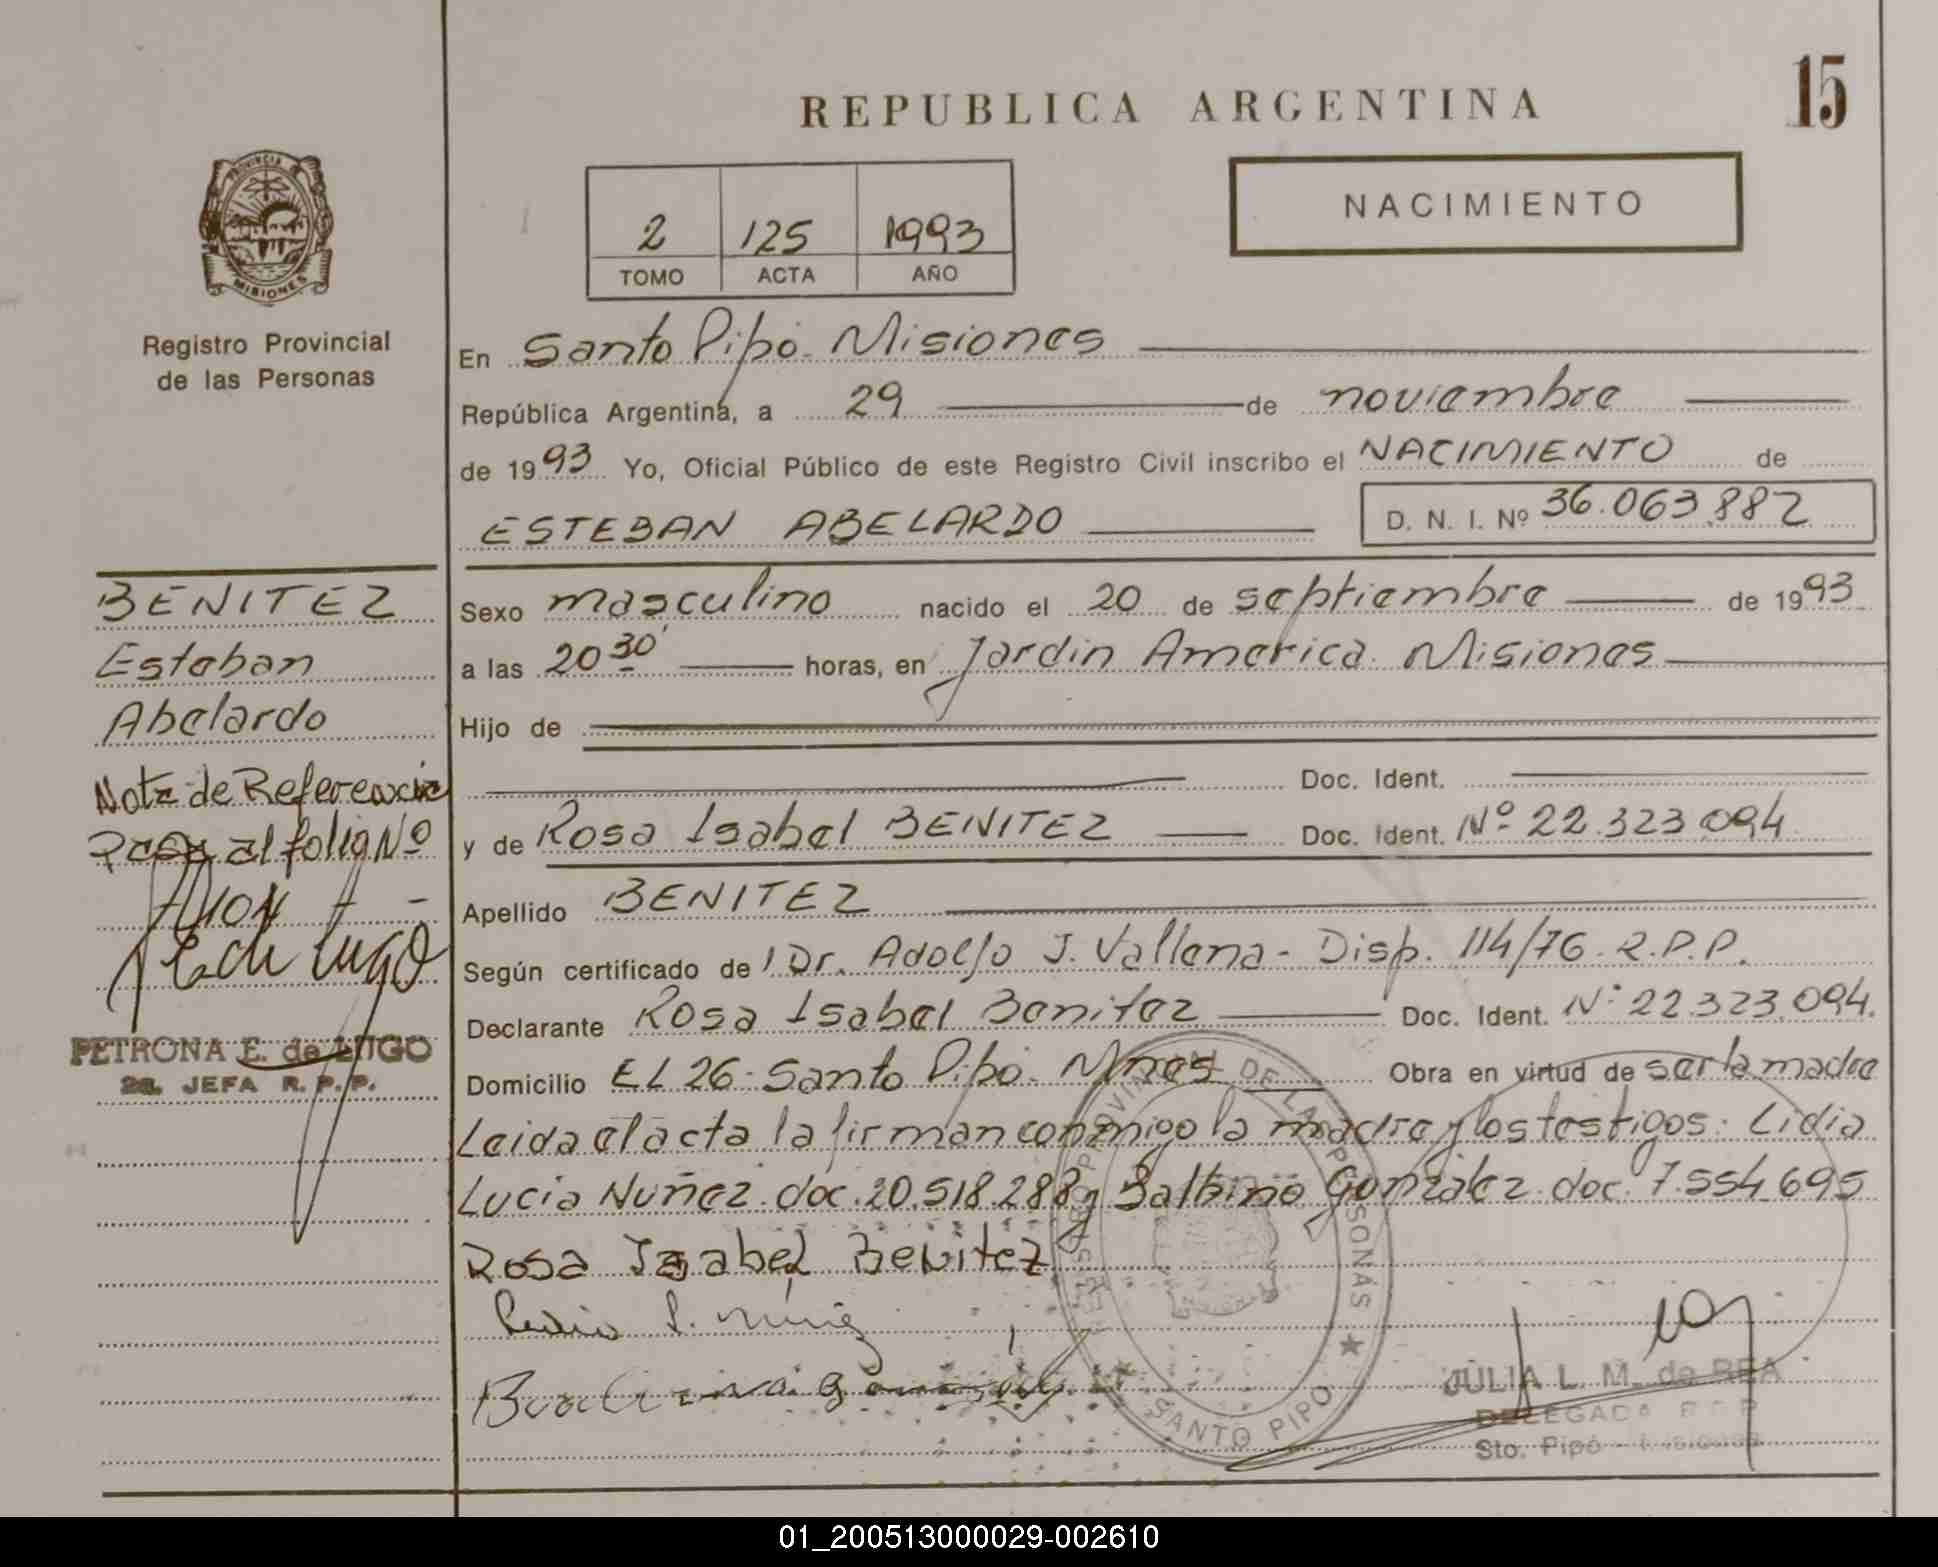 15
REPUBLICA ARGENTINA
NACIMIENTO
2 125 1993
TOMO ACTA AÑO
PROVINCIA
MISIONES
Registro Provincial
de las Personas
En Santo Pipó. Misiones
República Argentina, a 29 de noviembre
de 1993 Yo, Oficial Público de este Registro Civil inscribo el NACIMIENTO de
ESTEBAN ABELARDO D. N. I. Nº 36.063.882
BENITEZ
Esteban
Abelardo
Nota de Referencia
Pasa al folio Nº
104
PETRONA E. de LUGO
2a. JEFA R. P. P.
Sexo masculino nacido el 20 de septiembre de 1993
a las 20 30' horas, en Jardin America. Misiones
Hijo de
Doc. Ident.
y de Rosa Isabel BENITEZ Doc. Ident. Nº 22.323.094
Apellido BENITEZ
Según certificado de Dr. Adolfo J. Vallena - Disp. 114/76. R.P.P.
Declarante Rosa Isabel Benitez Doc. Ident. Nº 22.323.094.
Domicilio EL 26. Santo Pipó. Mnes Obra en virtud de ser la madre
Leida el acta la firman conmigo la madre y los testigos: Lidia
Lucia Nuñez. doc. 20.518.288 y Balbino Gonzalez. doc. 7.554.695
Rosa Isabel Benitez
REGISTRO PROVINCIAL DE LAS PERSONAS
SANTO PIPO
JULIA L. M. de REA
DELEGADA R P P
Sto. Pipó - Misiones
01_200513000029-002610